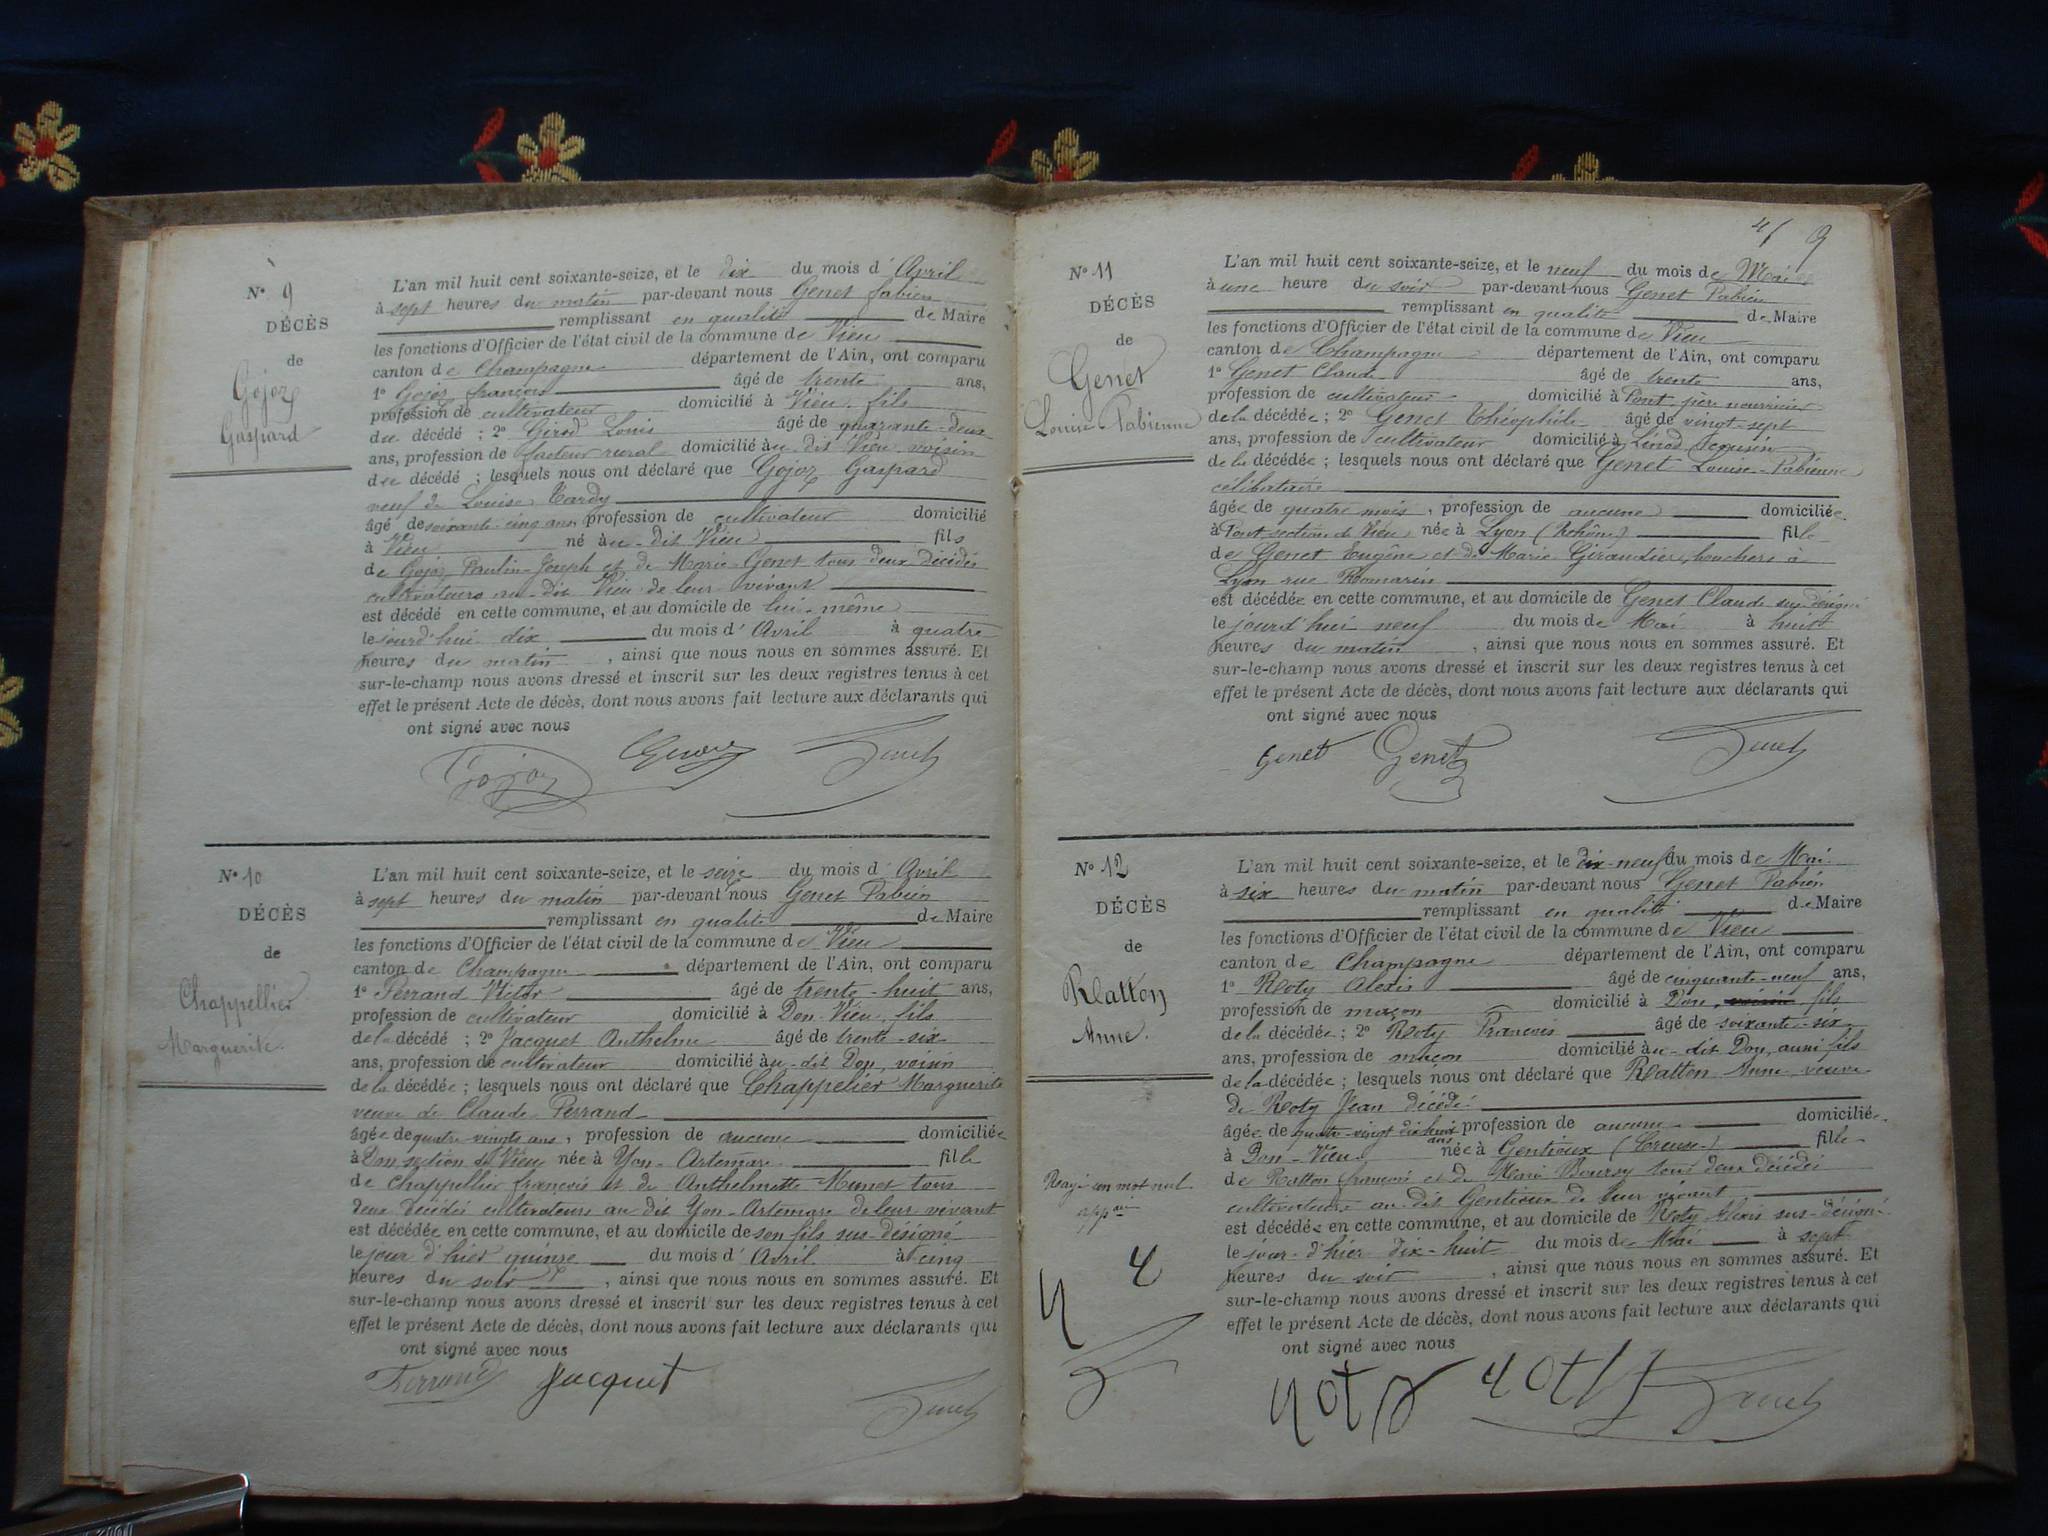 N° 9
DÉCÈS
de
Gojoz
Gaspard
L'an mil huit cent soixante-seize, et le dix du mois d'Avril
à sept heures du matin par-devant nous Genet fabien
remplissant en qualité de Maire
les fonctions d'Officier de l'état civil de la commune de Vieu
canton de Champagne département de l'Ain, ont comparu
1° Gojoz françois âgé de trente ans,
profession de cultivateur domicilié à Vieu, fils
du décédé ; 2° Girod Louis âgé de quarante-deux
ans, profession de facteur rural domicilié au-dit Vieu, voisin
du décédé ; lesquels nous ont déclaré que Gojoz Gaspard
veuf de Louise Tardy
âgé de soixante-cinq ans, profession de cultivateur domicilié
à Vieu né au-dit Vieu fils
de Gojoz Paulin-Joseph et de Marie Genet tous deux décédés
cultivateurs au-dit Vieu de leur vivant
est décédé en cette commune, et au domicile de lui-même
le jourd'hui dix du mois d'Avril à quatre
heures du matin, ainsi que nous nous en sommes assuré. Et
sur-le-champ nous avons dressé et inscrit sur les deux registres tenus à cet
effet le présent Acte de décès, dont nous avons fait lecture aux déclarants qui
ont signé avec nous
Gojoz
N° 10
DÉCÈS
de
Chappellier
Marguerite
L'an mil huit cent soixante-seize, et le seize du mois d'Avril
à sept heures du matin par-devant nous Genet Fabien
remplissant en qualité de Maire
les fonctions d'Officier de l'état civil de la commune de Vieu
canton de Champagne département de l'Ain, ont comparu
1° Perrand Victor âgé de trente-huit ans,
profession de cultivateur domicilié à Don-Vieu, fils
de la décédé ; 2° Jacquet Anthelme âgé de trente-six
ans, profession de cultivateur domicilié au-dit Don, voisin
de la décédée ; lesquels nous ont déclaré que Chappelier Marguerite
veuve de Claude Perrand
âgée de quatre-vingts ans, profession de aucune domiciliée
à Don section de Vieu née à Yon-Artemare fille
de Chappellier françois et de Anthelmette Munet tous
deux décédés cultivateurs au dit Yon-Artemare de leur vivant
est décédée en cette commune, et au domicile de son fils sus-désigné
le jour d'hier quinze du mois d'Avril à cinq
heures du soir, ainsi que nous nous en sommes assuré. Et
sur-le-champ nous avons dressé et inscrit sur les deux registres tenus à cet
effet le présent Acte de décès, dont nous avons fait lecture aux déclarants qui
ont signé avec nous
Perrand Jacquet
9
N° 11
DÉCÈS
de
Genet
Louise-Fabienne
L'an mil huit cent soixante-seize, et le neuf du mois de Mai
à une heure du soir par-devant nous Genet Fabien
remplissant en qualité de Maire
les fonctions d'Officier de l'état civil de la commune de Vieu
canton de Champagne département de l'Ain, ont comparu
1° Genet Claude âgé de trente ans,
profession de cultivateur domicilié à Pont, père nourricier
de la décédée ; 2° Genet Théophile âgé de vingt-sept
ans, profession de cultivateur domicilié à
de la décédée ; lesquels nous ont déclaré que Genet Louise-Fabienne
célibataire
âgée de quatre mois, profession de aucune domiciliée
à Pont section de Vieu née à Lyon (Rhône) fille
de Genet Eugène et de Marie Giraudier, bouchers à
Lyon rue Romarin
est décédée en cette commune, et au domicile de Genet Claude sus-désigné
le jourd'hui neuf du mois de Mai à huit
heures du matin, ainsi que nous nous en sommes assuré. Et
sur-le-champ nous avons dressé et inscrit sur les deux registres tenus à cet
effet le présent Acte de décès, dont nous avons fait lecture aux déclarants qui
ont signé avec nous
Genet Genet
N° 12
DÉCÈS
de
Ratton
Anne.
Rayé un mot nul
L'an mil huit cent soixante-seize, et le dix-neuf du mois de Mai
à six heures du matin par-devant nous Genet Fabien
remplissant en qualité de Maire
les fonctions d'Officier de l'état civil de la commune de Vieu
canton de Champagne département de l'Ain, ont comparu
1° Roty Alexis âgé de cinquante-neuf ans,
profession de maçon domicilié à Don, voisin fils
de la décédée ; 2° Roty François âgé de soixante-six
ans, profession de maçon domicilié au-dit Don, aussi fils
de la décédée ; lesquels nous ont déclaré que Ratton Anne veuve
de Roty Jean décédé
âgée de quatre-vingt dix huit ans profession de aucune domiciliée
à Don-Vieu née à Gentioux (Creuse) fille
de Ratton françois et de Marie Boursy tous deux décédés
cultivateurs au dit Gentioux de leur vivant
est décédée en cette commune, et au domicile de Roty Alexis sus-désigné
le jour d'hier dix-huit du mois de Mai à sept
heures du soir, ainsi que nous nous en sommes assuré. Et
sur-le-champ nous avons dressé et inscrit sur les deux registres tenus à cet
effet le présent Acte de décès, dont nous avons fait lecture aux déclarants qui
ont signé avec nous